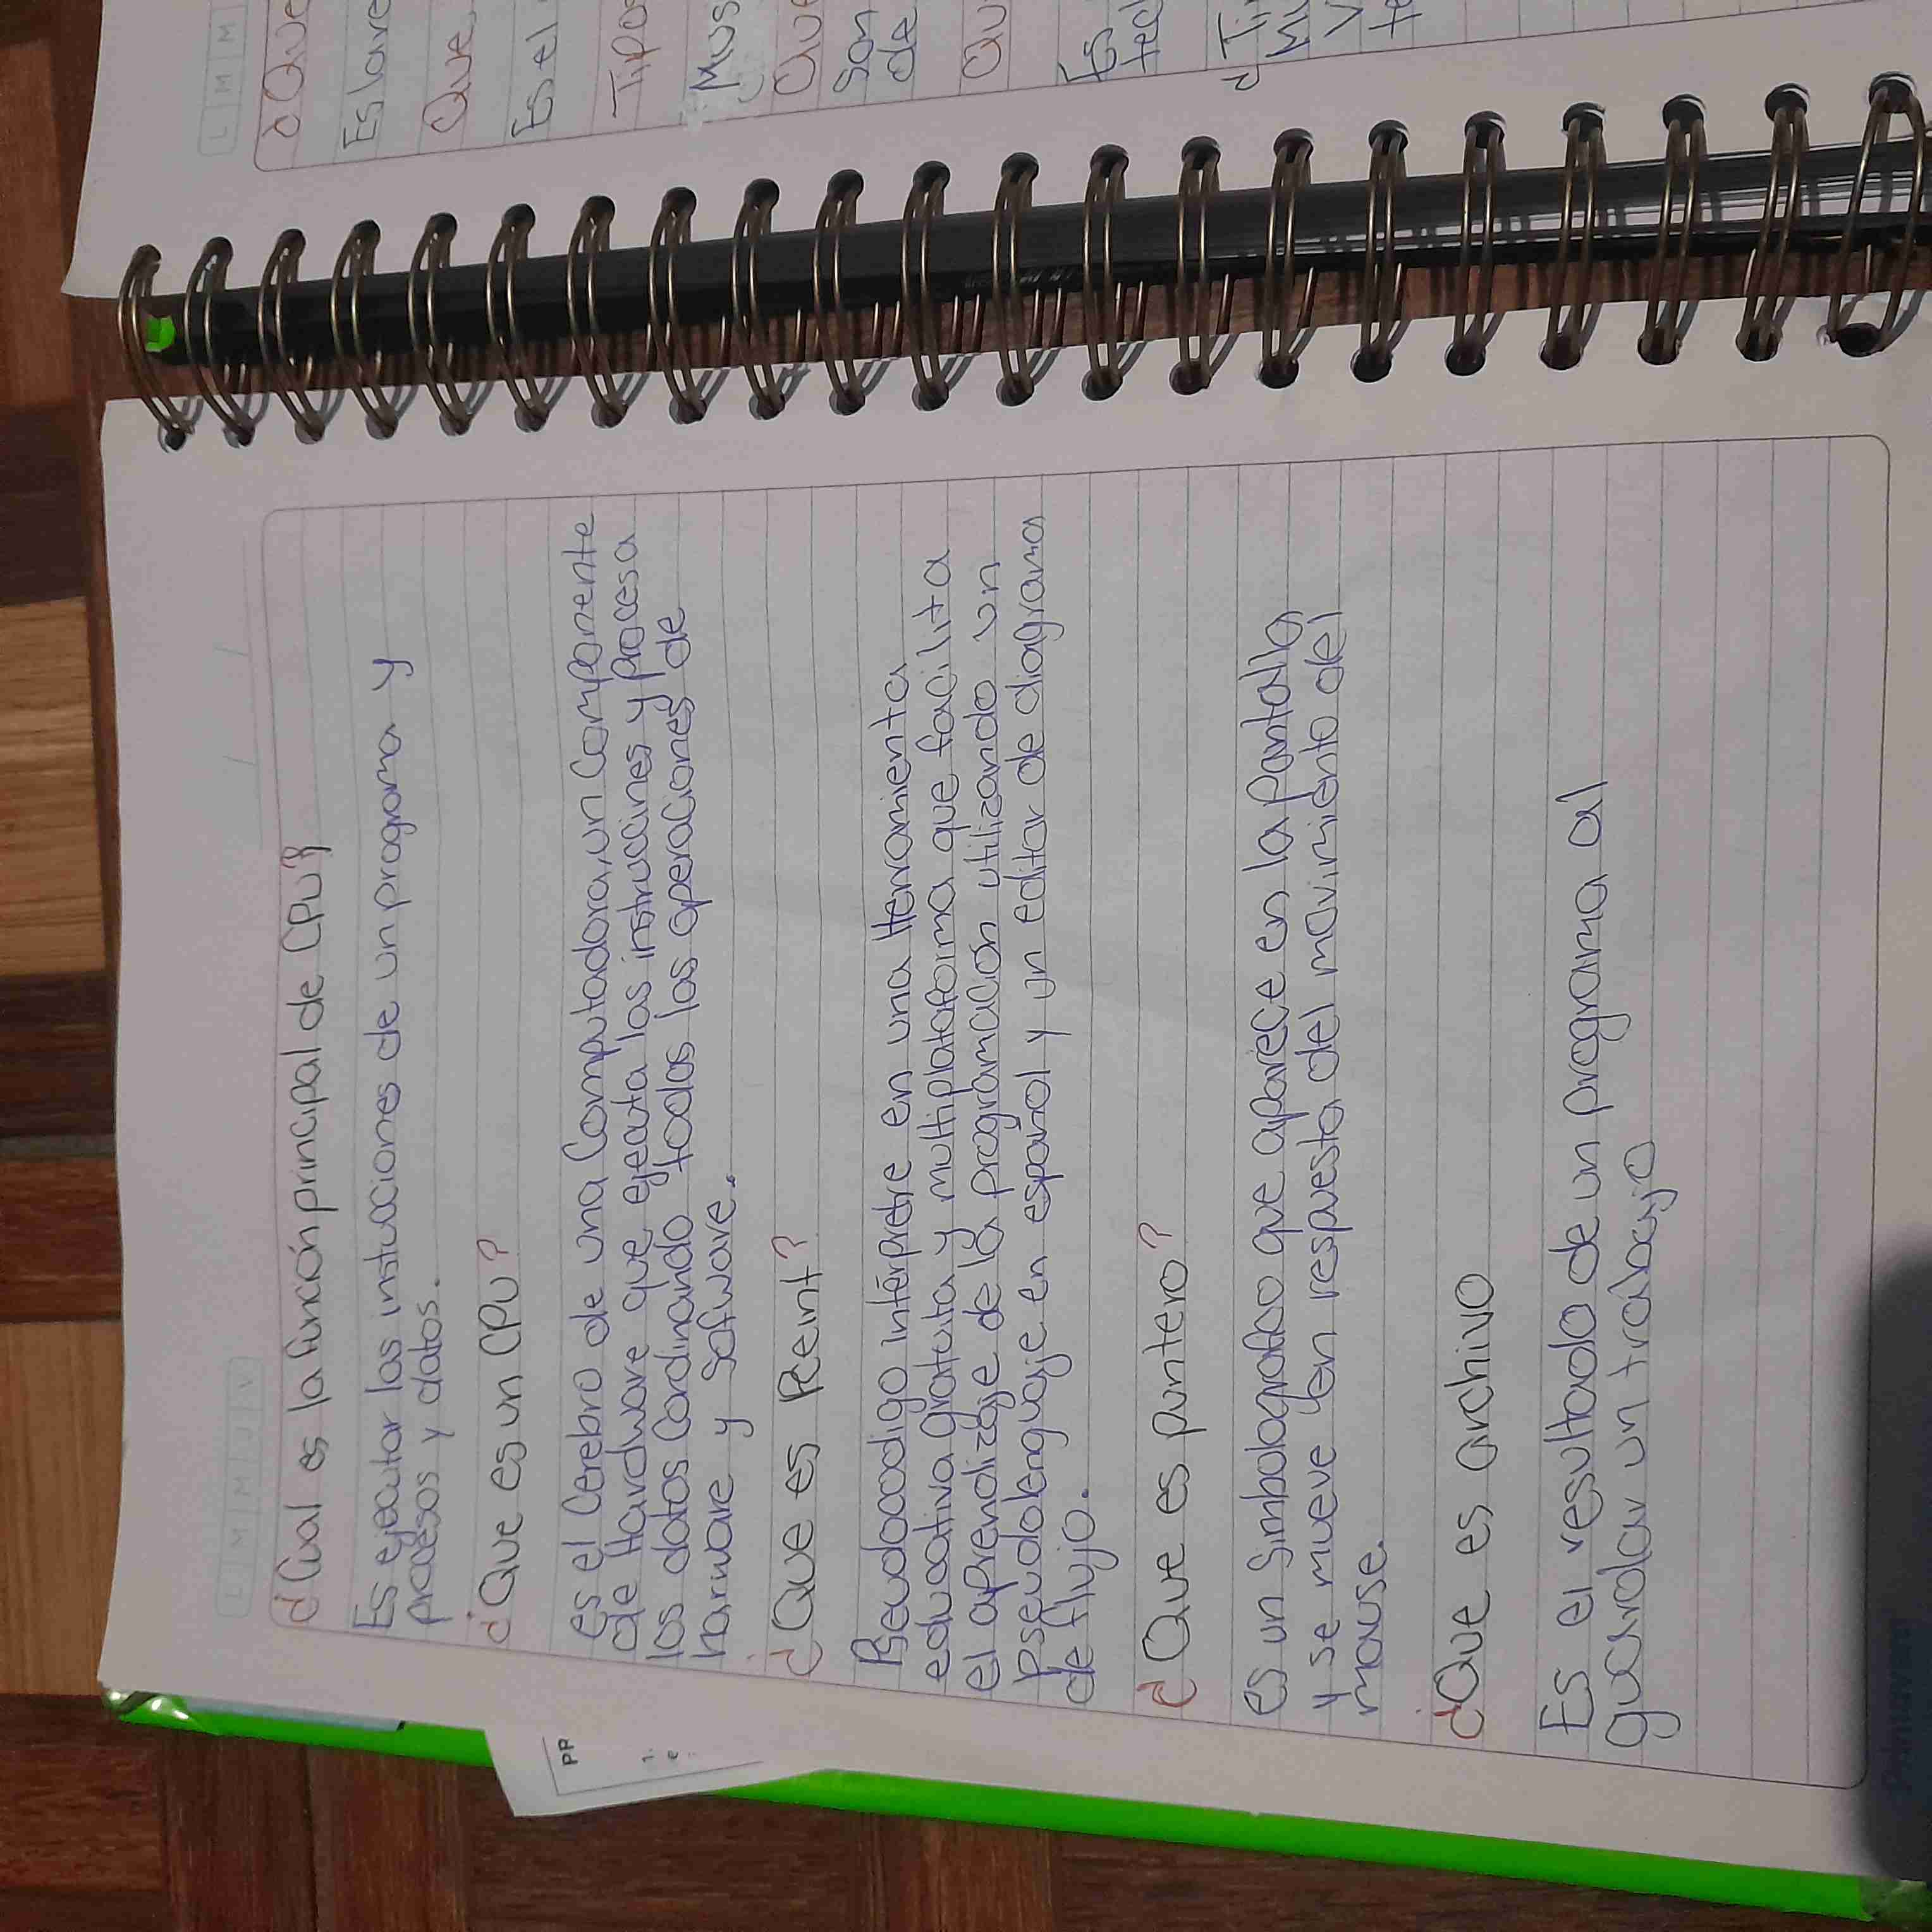 L M M J V
¿Cual es la función principal de CPU?
Es ejecutar las instucciones de un programa y
procesos y datos.
¿Que es un CPU?
es el Cerebro de una Computadora, un Componente
de Hardware que ejecuta las instrucines y procesa
los datos Cordinando todas las operaciones de
harware y Sofware.
¿Que es Pceint?
Pseudocodigo intérpretre en una Herramienta
educativa gratuita y multiplataforma que facilita
el aprendizaje de la programación utilizando un
pseudolenguaje en español y un editor de diagrama
de flujo.
¿Que es puntero?
es un Simbolografico que aparece en la pantalla
y se mueve en respuesta del movimiento del
mouse.
¿Que es archivo
Es el resultado de un programa al
guardar un trabajo
L M M
¿Que
Es
Que
Es el
Tipo
Mus
Que
Son
de
Qu
Es
PP
1.
e